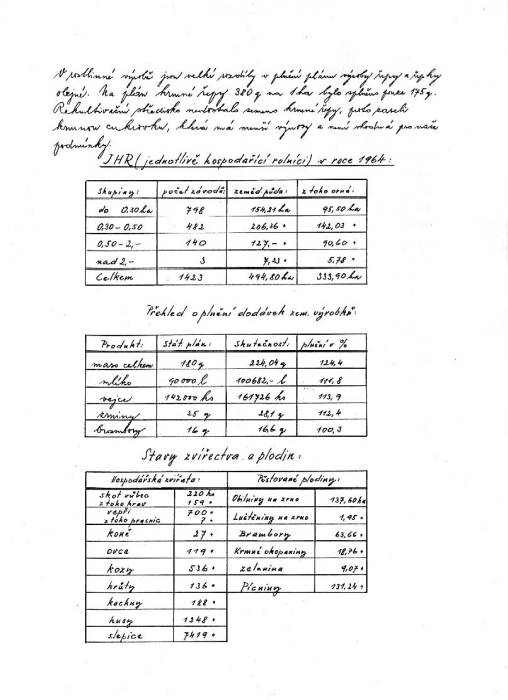 V rostlinné výrobě jsou velké rozdíly v plnění plánu výroby řepy a řepky
olejné. Na plán krmné řepy 380 q na 1 ha bylo splněno pouze 175 q.
Rekultivační středisko nedostalo semeno krmné řepy, proto zaseli
krmnou cukrovku, která má menší výnosy a není vhodná pro naše
podmínky.
JHR (jednotlivě hospodařící rolníci) v roce 1964:
Skupiny: počet závodů: zeměd. půda: z toho orné:
do 0.30 ha 798 154,21 ha 95,50 ha
0,30 - 0,50 482 206,26 " 142,03 "
0,50 - 2,- 140 127,- " 90,60 "
nad 2,- 3 7,23 " 5.78 "
Celkem 1423 494,80 ha 333,90 ha
Přehled o plnění dodávek zem. výrobků:
Produkt: Stát. plán: Skutečnost: plnění v %
maso celkem 180 q 224,04 q 124,4
mléko 90000 l 100682,- l 111,8
vejce 142000 ks 161726 ks 113,9
zrniny 25 q 28,1 q 112,4
brambory 16 q 16,6 q 100,3
Stavy zvířectva a plodin:
Hospodářská zvířata: Pěstované plodiny:
skot vůbec 220 ks Obilniny na zrno 137,60 ha
z toho krav 159 "
vepři 700 " Luštěniny na zrno 1,95 "
z toho prasnic 7 "
koně 27 " Brambory 63,66 "
ovce 119 " Krmné okopaniny 18,76 "
kozy 536 " zelenina 9,07 "
krůty 136 " Pícniny 131,24 "
kachny 188 "
husy 1248 "
slepice 7419 "